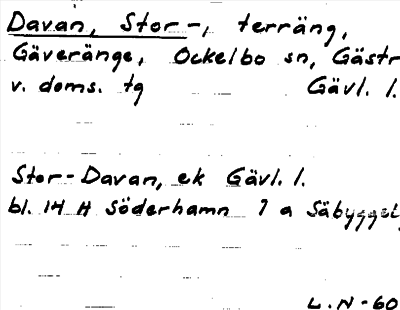 Davan, Stor-, terräng,
Gäveränge, Ockelbo sn, Gästr
v. doms. tg Gävl. l.
Stor-Davan, ek Gävl. l.
bl. 14 H Söderhamn 7 a Säbygget,
L.N-60